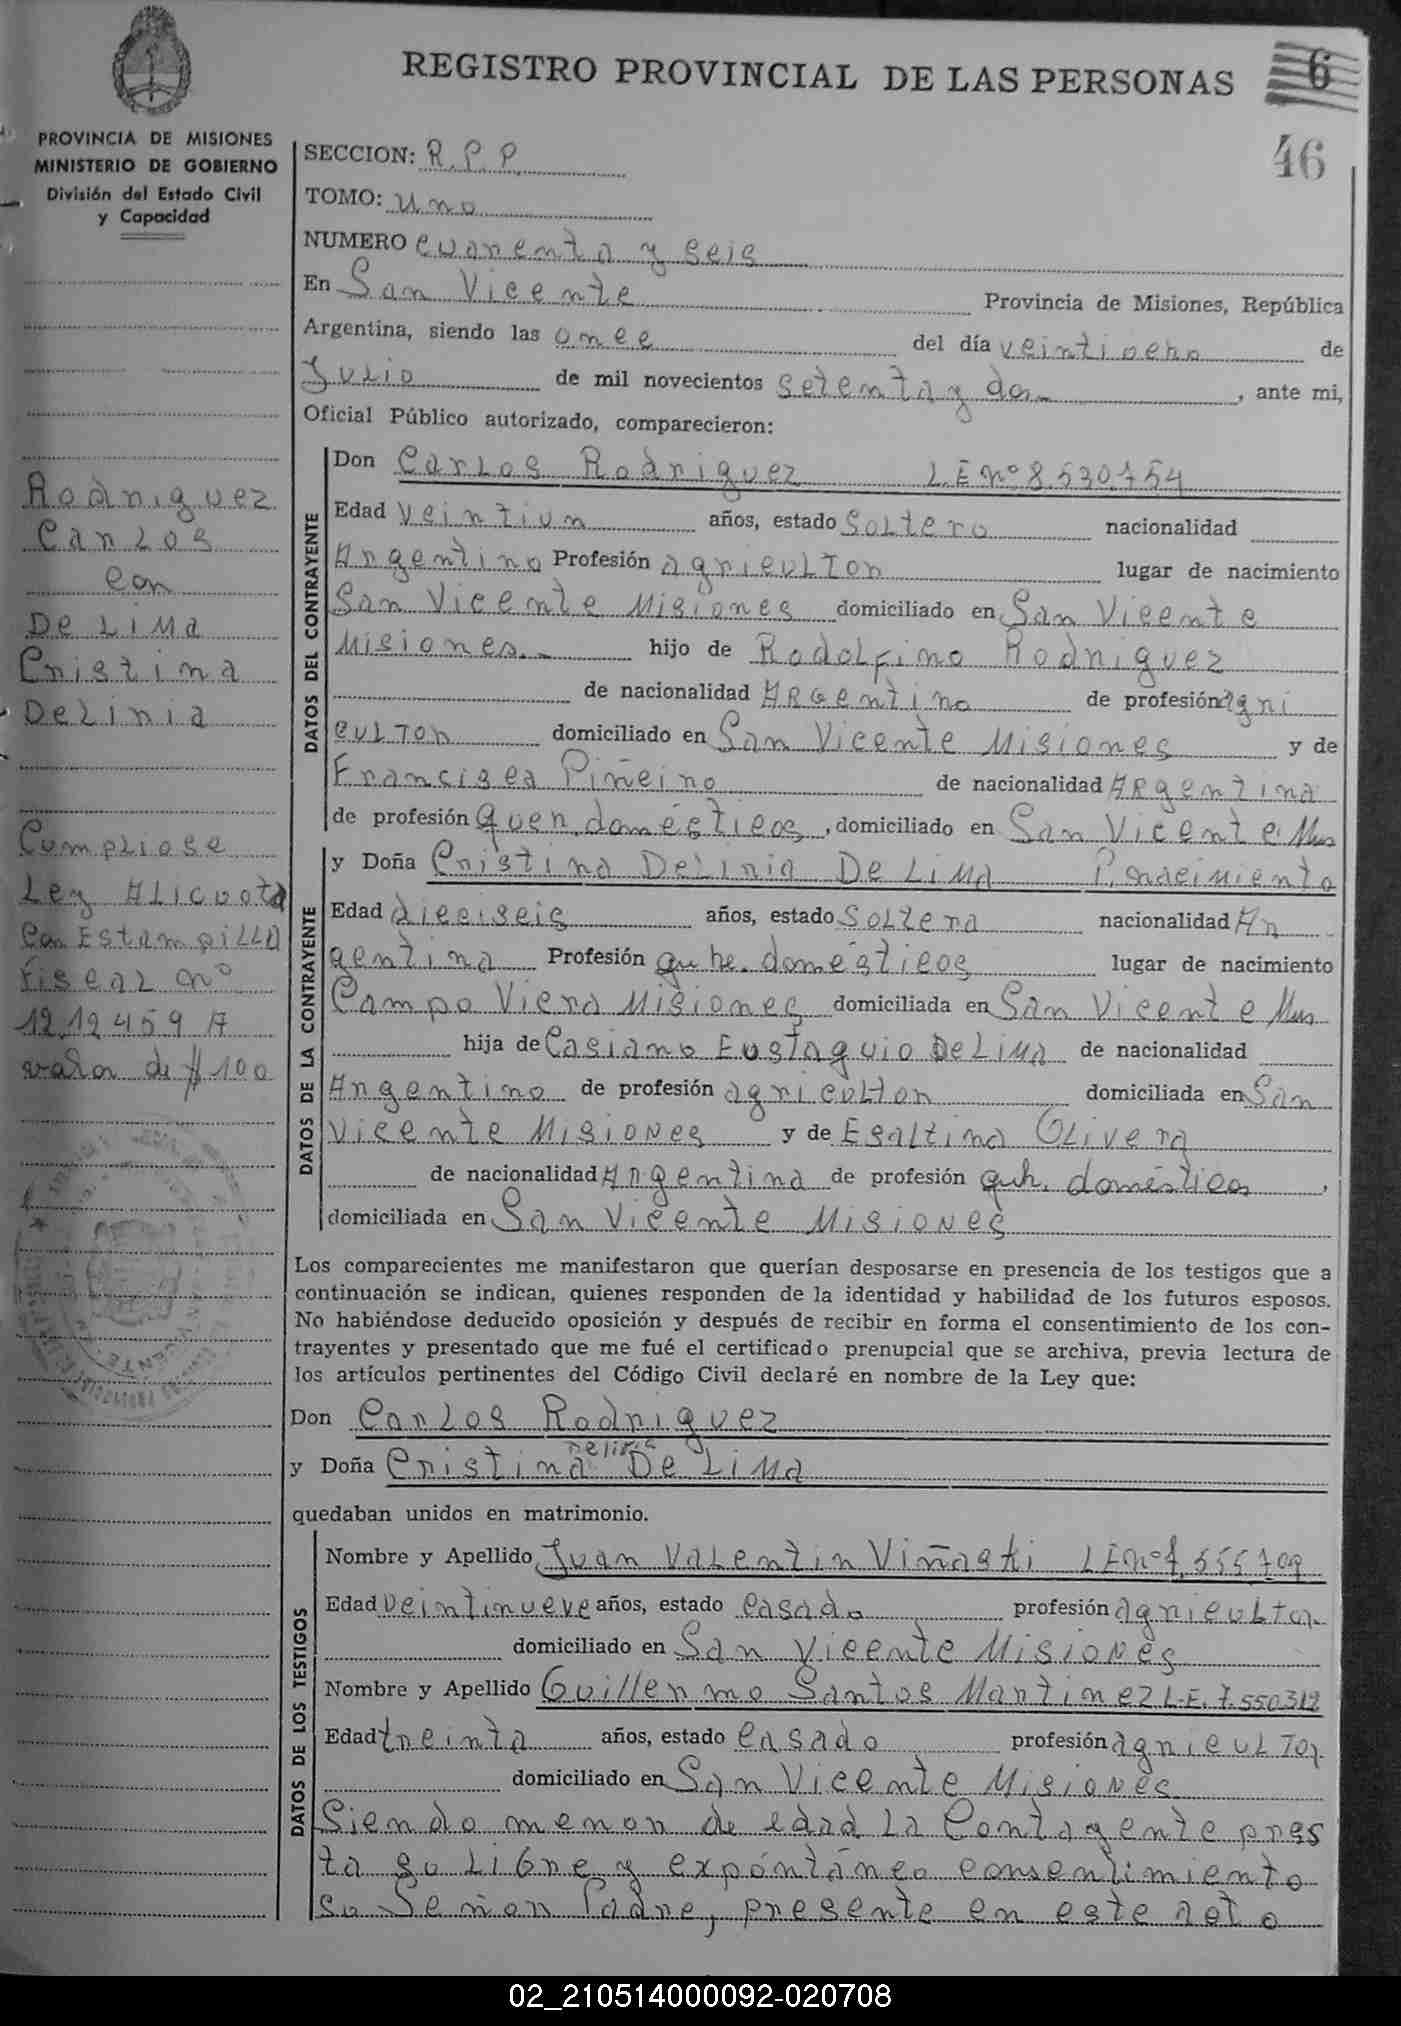 REGISTRO PROVINCIAL DE LAS PERSONAS
6
46
PROVINCIA DE MISIONES
MINISTERIO DE GOBIERNO
División del Estado Civil
y Capacidad
SECCION: R.P.P.
TOMO: uno
NUMERO cuarenta y seis
En San Vicente Provincia de Misiones, República
Argentina, siendo las once del día veintiocho de
Julio de mil novecientos setenta y dos.- , ante mi,
Oficial Público autorizado, comparecieron:
Rodriguez
Carlos
con
De Lima
Cristina
Delinia
Cumpliose
Ley Alicuota
Con Estampilla
fiscal nº
1212459 A
valor de $ 100
DATOS DEL CONTRAYENTE
Don Carlos Rodriguez L.E nº 8.530.754
Edad veintiun años, estado soltero nacionalidad
Argentino Profesión agricultor lugar de nacimiento
San Vicente Misiones domiciliado en San Vicente
Misiones.- hijo de Rodolfino Rodriguez
de nacionalidad Argentino de profesión agri
cultor domiciliado en San Vicente Misiones y de
Francisca Piñeiro de nacionalidad Argentina
de profesión quen. domésticos, domiciliado en San Vicente Mnes
DATOS DE LA CONTRAYENTE
y Doña Cristina Delinia De Lima P. nacimiento
Edad dieciseis años, estado soltera nacionalidad Ar
gentina Profesión quhe. domésticos lugar de nacimiento
Campo Viera Misiones domiciliada en San Vicente Mnes
hija de Casiano Eustaquio De Lima de nacionalidad
Argentino de profesión agricultor domiciliada en San
Vicente Misiones y de Esaltina Olivera
de nacionalidad Argentina de profesión queh. domésticos,
domiciliada en San Vicente Misiones
Los comparecientes me manifestaron que querían desposarse en presencia de los testigos que a
continuación se indican, quienes responden de la identidad y habilidad de los futuros esposos.
No habiéndose deducido oposición y después de recibir en forma el consentimiento de los con-
trayentes y presentado que me fué el certificado prenupcial que se archiva, previa lectura de
los artículos pertinentes del Código Civil declaré en nombre de la Ley que:
Don Carlos Rodriguez
Delinia
y Doña Cristina De Lima
quedaban unidos en matrimonio.
DATOS DE LOS TESTIGOS
Nombre y Apellido Juan Valentin Viñaski L.E nº 7.555.709
Edad veintinueve años, estado casado profesión agricultor
domiciliado en San Vicente Misiones
Nombre y Apellido Guillermo Santos Martinez L.E. 7.550312
Edad treinta años, estado casado profesión agricultor
domiciliado en San Vicente Misiones
Siendo menor de edad la Contayente pres
ta su libre y expóntáneo consentimiento
su Señor Padre, presente en este acto
02_210514000092-020708